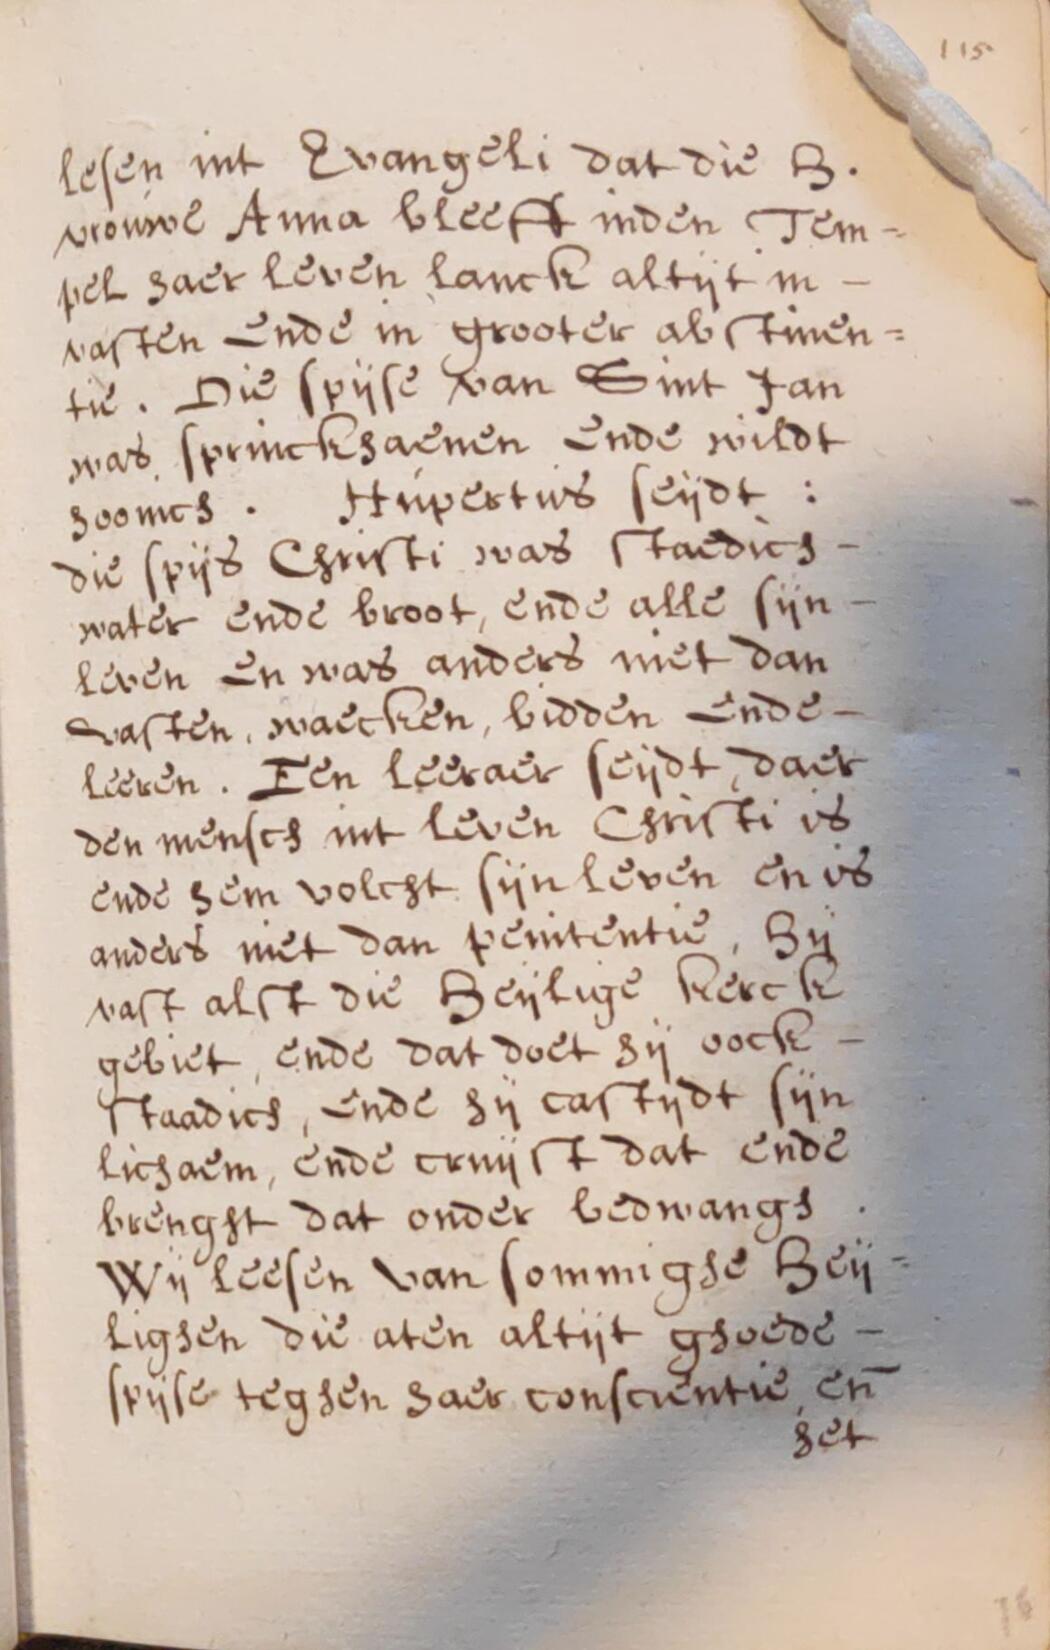 115
lesen int Evangeli dat die H.
vrouwe Anna bleeft inden Tem-
pel haer leven lanck altijt in -
vasten ende in grooter abstinen=
tie. Die spijse van Sint Jan
was sprinckhaenen ende wildt
hoonich. Hupertus seijdt :
die spijs Christi was staedich -
water ende broot, ende alle sijn -
leven en was anders niet dan
vasten, waecken, bidden ende -
leeren. Een leeraer seijdt, daer
den mensch int leven Christi is
ende hem volcht sijn leven en is
anders niet dan penitentie, Hij
vast alst die Heijlige kerck
gebiet, ende dat doet hij oock -
staadich, ende hij castijdt sijn
lichaem, ende cruijst dat ende
brenght dat onder bedwangh.
Wij leesen van sommighe Heij=
lighen die aten altijt ghoede -
spijse teghen haer conscientie, en̄
het